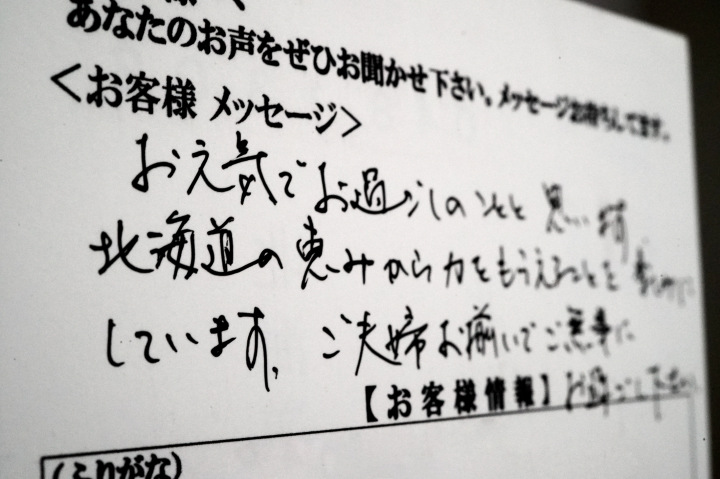 あなたのお声をぜひお聞かせ下さい。メッセージお待ちしてます。
＜お客様 メッセージ＞
お元気でお過ごしのことと思います
北海道の恵みから力をもらえることを
しています。ご夫婦お揃いでご無事に
お過ごし下さい
【お客様情報】
(ふりがな)